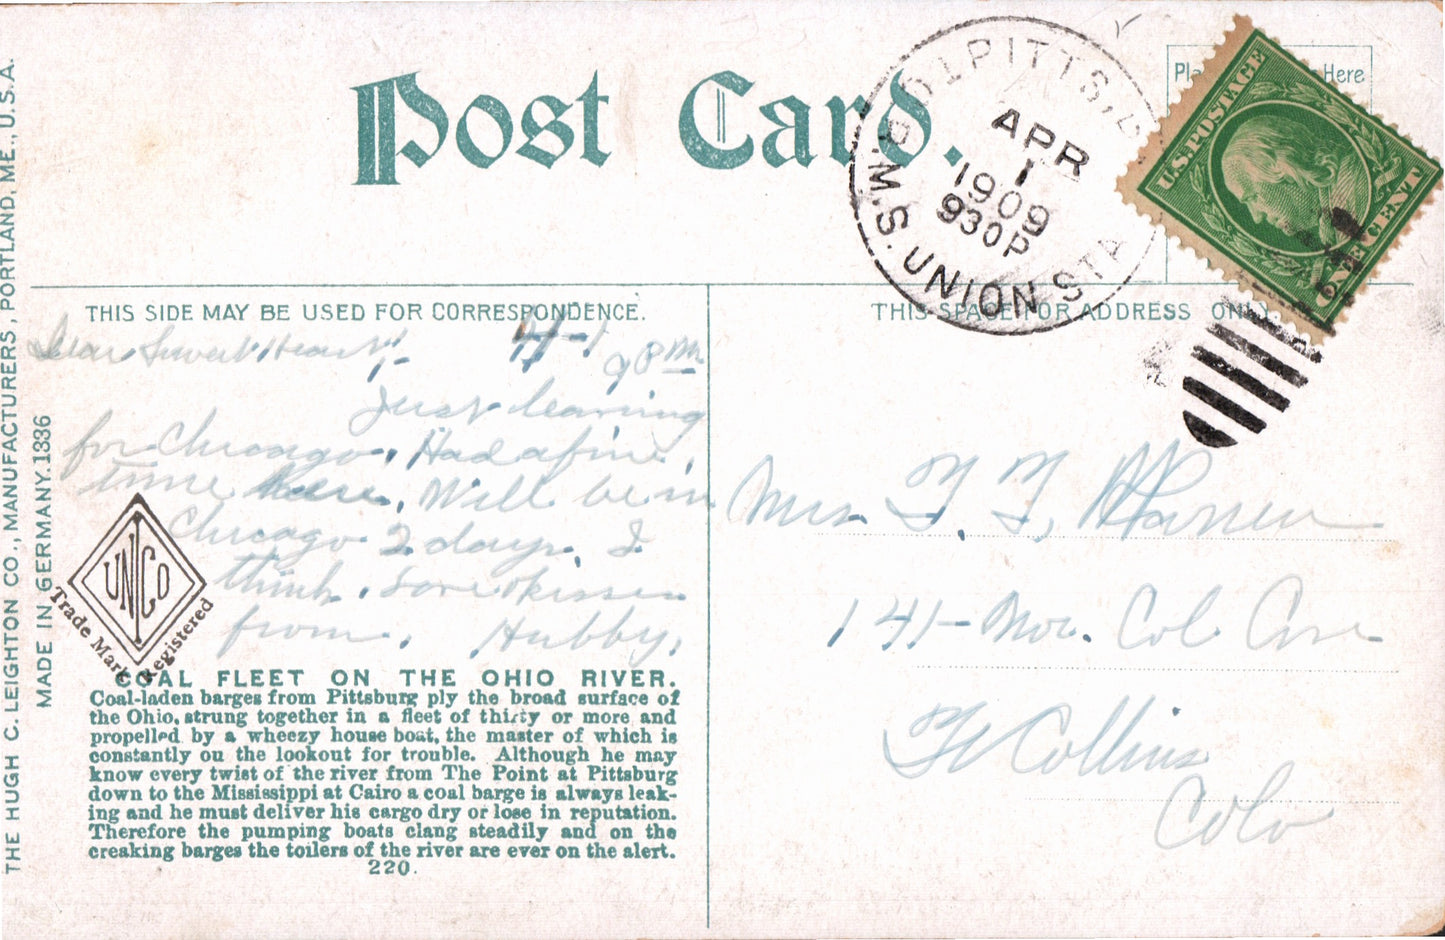 Post Card.
PITTS,
R.M.S. UNION STA
APR
1
1909
930P
Pla Here
U.S. POSTAGE
ONE CENT
THIS SIDE MAY BE USED FOR CORRESPONDENCE.
THIS SPACE FOR ADDRESS ONLY.
Dear Sweet Heart,
4-1
9 PM
Just leaving
for Chicago. Had a fine
time here. Will be in
Chicago 2 days. I
think. Love & kisses
from. Hubby.
Mrs. F. F.
141- No. Col Ave
Ft Collins
Colo
UNCO
Trade Mark Registered
COAL FLEET ON THE OHIO RIVER.
Coal-laden barges from Pittsburg ply the broad surface of
the Ohio, strung together in a fleet of thirty or more and
propelled by a wheezy house boat, the master of which is
constantly on the lookout for trouble. Although he may
know every twist of the river from The Point at Pittsburg
down to the Mississippi at Cairo a coal barge is always leak-
ing and he must deliver his cargo dry or lose in reputation.
Therefore the pumping boats clang steadily and on the
creaking barges the toilers of the river are ever on the alert.
220.
THE HUGH C. LEIGHTON CO., MANUFACTURERS, PORTLAND, ME., U.S.A.
MADE IN GERMANY. 1336